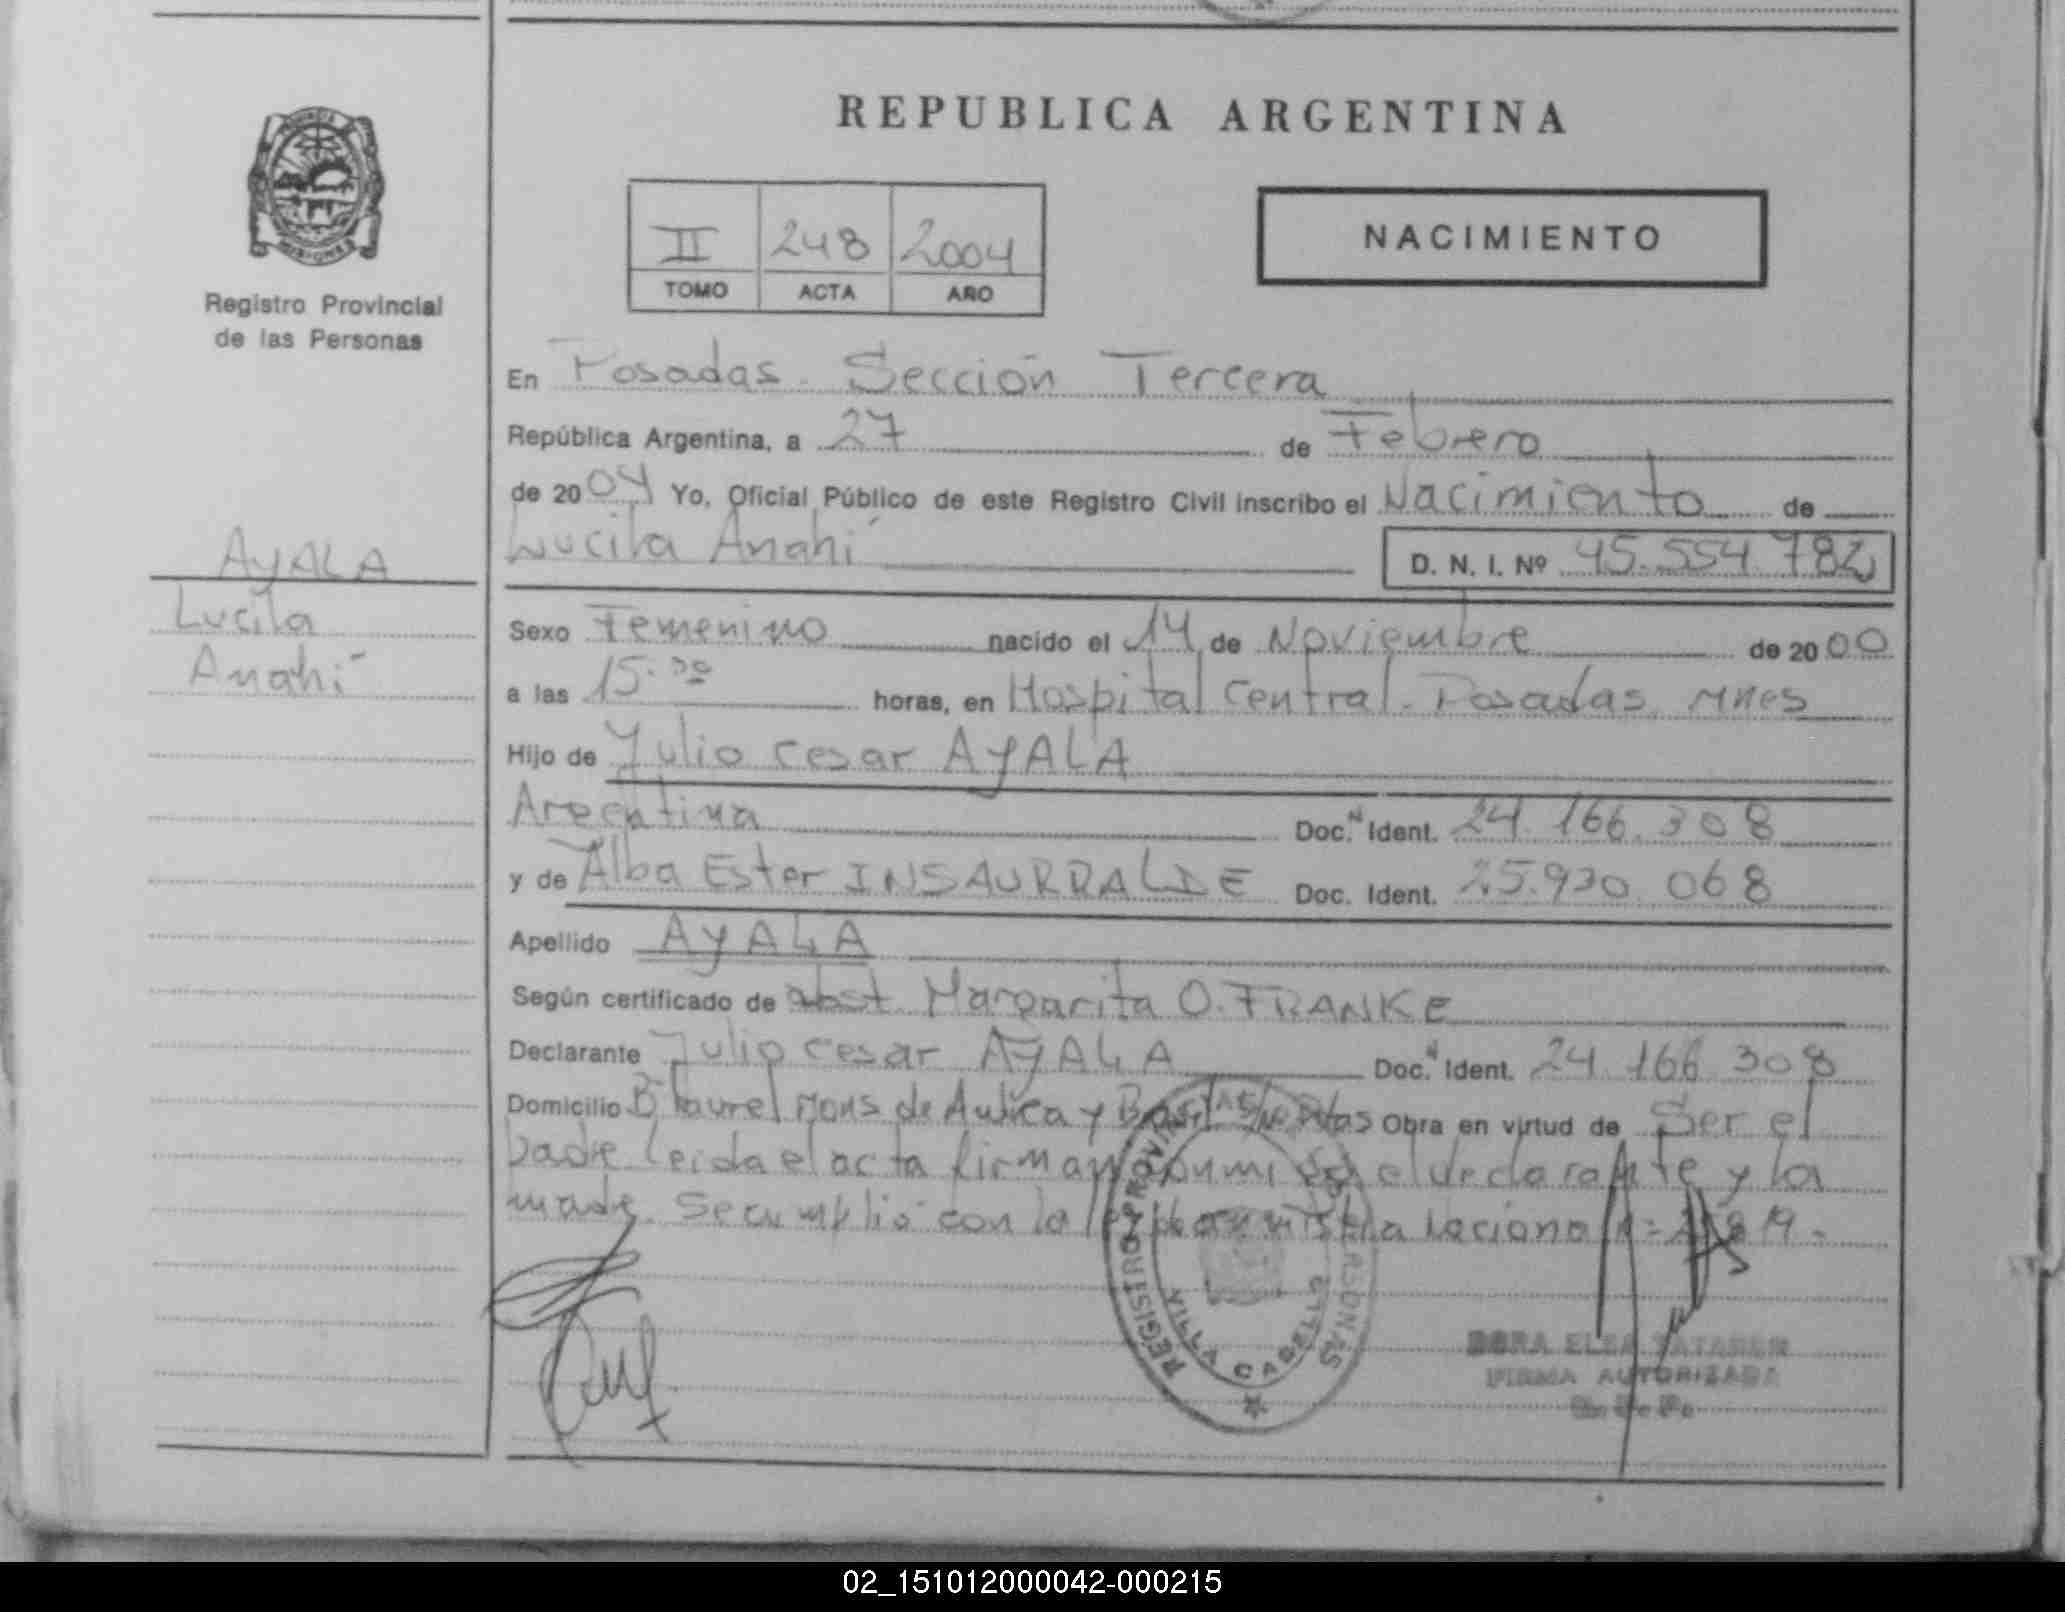 REPUBLICA ARGENTINA
II 248 2004
TOMO ACTA AÑO
NACIMIENTO
PROVINCIA
MISIONES
Registro Provincial
de las Personas
AYALA
Lucila
Anahí
En Posadas. Sección Tercera
República Argentina, a 27 de Febrero
de 2004 Yo, Oficial Público de este Registro Civil inscribo el Nacimiento de
Lucila Anahí D. N. I. Nº 45.554.782
Sexo Femenino nacido el 14 de Noviembre de 2000
a las 15.30 horas, en Hospital Central. Posadas Mnes
Hijo de Julio Cesar AYALA
Argentina Doc. Ident. 24.166.308
y de Alba Ester INSAURRALDE Doc. Ident. 25.930.068
Apellido AYALA
Según certificado de obst. Margarita O. FRANKE
Declarante Julio Cesar AYALA Doc. Ident. 24.166.308
Domicilio Bº Laurel Mons de Obra en virtud de Ser el
padre leida el acta firman el declarante y la
madre. Se cumplió con la
REGISTRO PROVINCIAL DE LAS PERSONAS
VILLA CABELLO
DORA ELSA
FIRMA AUTORIZADA
02_151012000042-000215